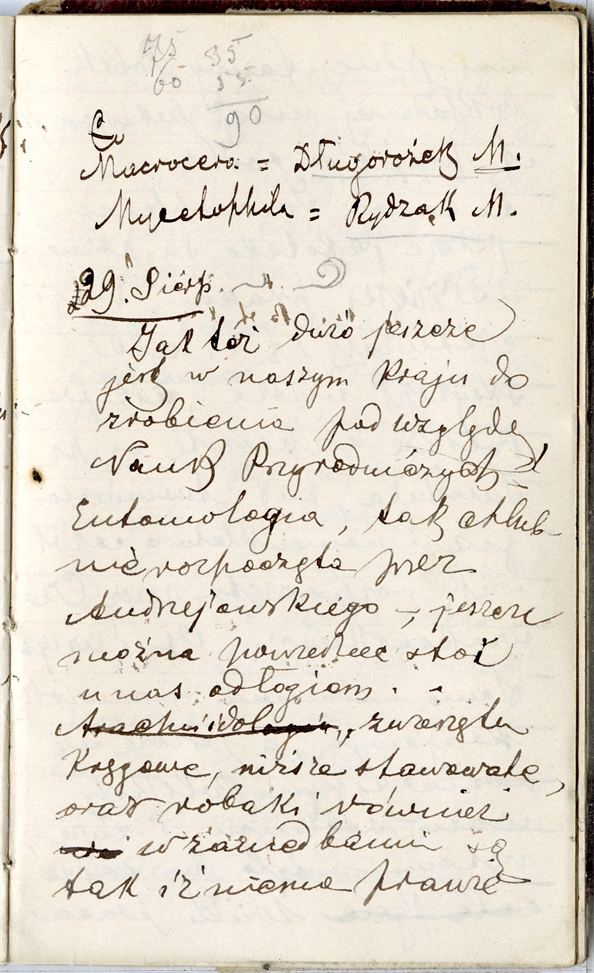 75 35
60 55
90
Macrocera = Długorożek M.
Mycetophila = Rydzak M.
29. Sierp.
Jak też dużo jeszcze
jest w naszym Kraju do
zrobienia pod względe
Nauk Przyrodniczych
Entomologia, tak chlub-
nie rozpoczęta przez
Andrzejowskiego —, jeszcze
można powiedzieć stoi
u nas odłogiem. —
Arachnidologia, zwierzęta
Kręgowe, niższe stawowate,
oraz robaki również
w zaniedbaniu są
tak iż niema prawie